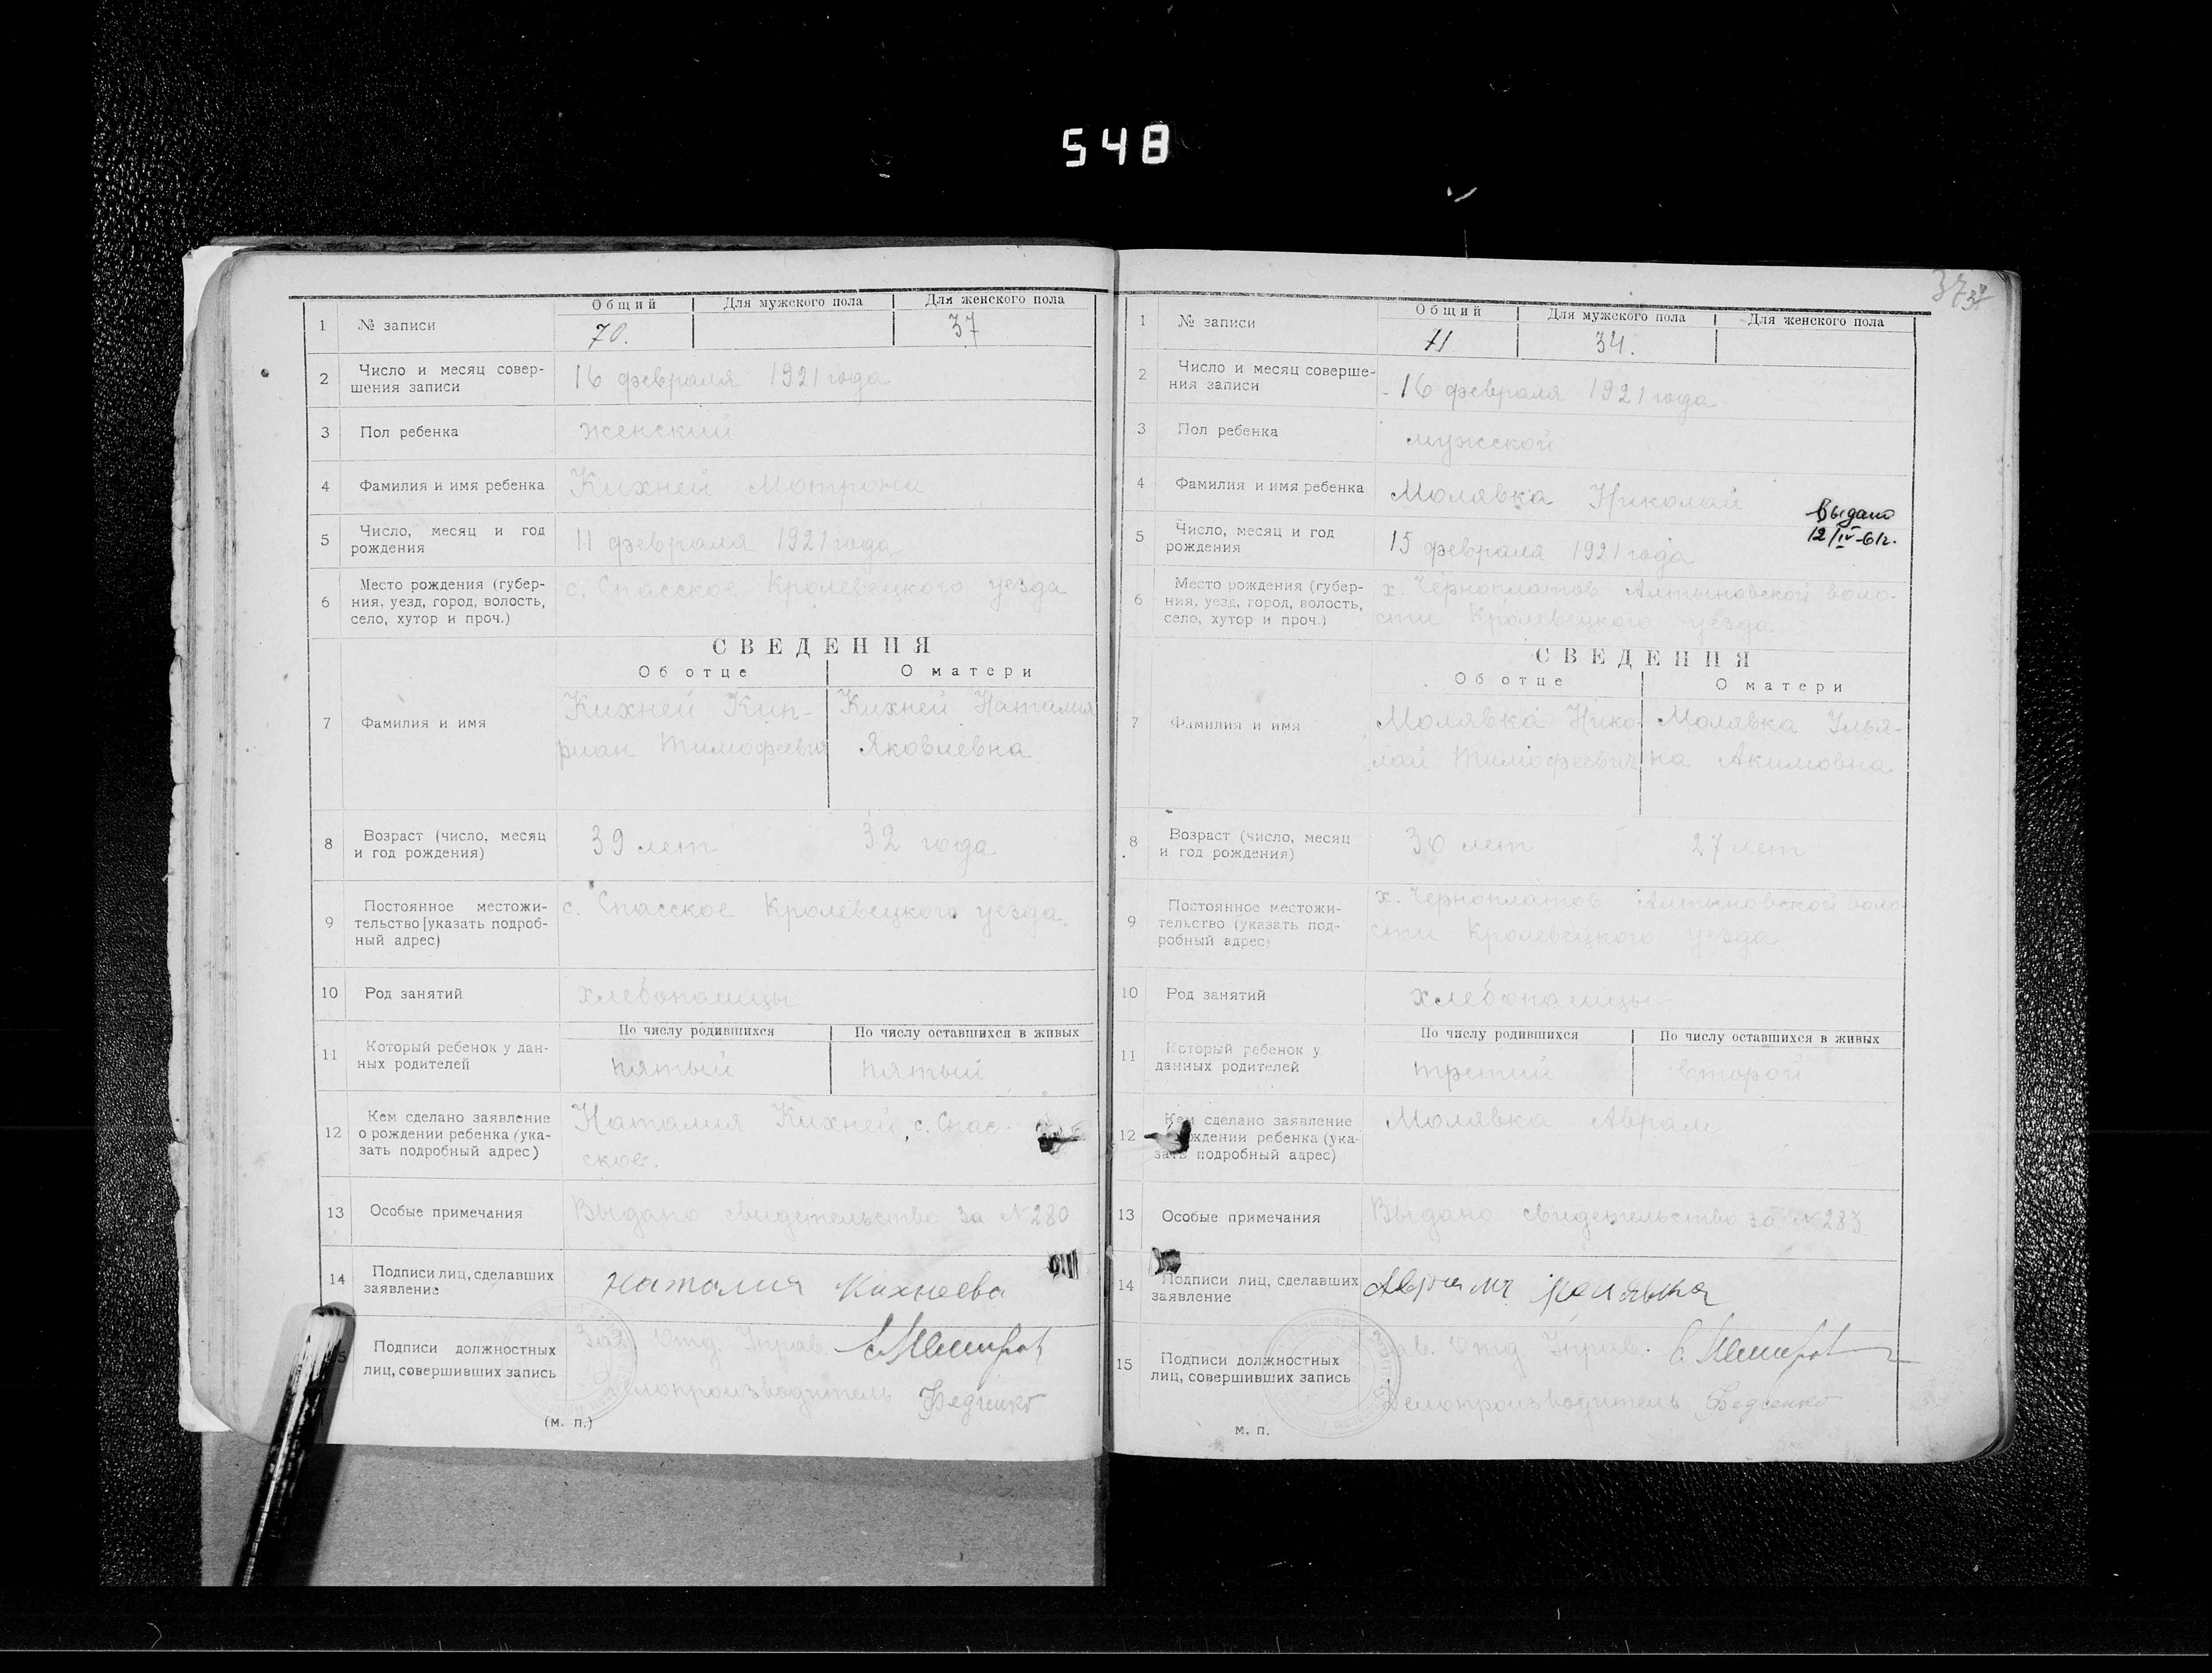 548
Общий Для мужского пола Для женского пола
1 № записи 70. 37
2 Число и месяц совер-
шения записи 16 февраля 1921 года
3 Пол ребенка женский
4 Фамилия и имя ребенка Кихней Мотрона
5 Число, месяц и год
рождения 11 февраля 1921 года
6 Место рождения (губер-
ния, уезд, город, волость,
село, хутор и проч.) с. Спасское Кролевецкого уезда
СВЕДЕНИЯ
Об отце О матери
7 Фамилия и имя
Кихней Кип-
риан Тимофеевич
Кихней Наталия
Яковлевна
8 Возраст (число, месяц
и год рождения) 39 лет 32 года
9 Постоянное местожи-
тельство [указать подроб-
ный адрес) с. Спасское Кролевецкого уезда.
10 Род занятий хлебопашцы
По числу родившихся По числу оставшихся в живых
11 Который ребенок у дан-
ных родителей пятый пятый
12 Кем сделано заявление
о рождении ребенка (ука-
зать подробный адрес)
Наталия Кихней, с. Спас-
ское.
13 Особые примечания Выдано свидетельство за № 280
14 Подписи лиц, сделавших
заявление Наталия Кихнеева
Подписи должностных
лиц, совершивших запись
Зав. Отд. Управ.
Делопроизводитель Федченко
(м. п.)
37 37
Общий Для мужского пола Для женского пола
1 № записи 71 34.
2 Число и месяц соверше-
ния записи 16 февраля 1921 года
3 Пол ребенка мужской
4 Фамилия и имя ребенка Молявка Николай
Выдано
12/IV-61г.
5 Число, месяц и год
рождения 15 февраля 1921 года
6 Место рождения (губер-
ния, уезд, город, волость,
село, хутор и проч.)
х. Черноплатов Алтыновской воло-
сти Кролевецкого уезда
СВЕДЕНИЯ
Об отце О матери
7 Фамилия и имя
Молявка Нико-
лай Тимофеевич
Молявка Улья-
на Акимовна
8 Возраст (число, месяц
и год рождения) 30 лет 27 лет
9 Постоянное местожи-
тельство (указать под-
робный адрес)
х. Черноплатов Алтыновской воло-
сти Кролевецкого уезда.
10 Род занятий хлебопашцы
По числу родившихся По числу оставшихся в живых
11 Который ребенок у
данных родителей третий второй
12 Кем сделано заявление
рождении ребенка (ука-
зать подробный адрес) Молявка Аврам
13 Особые примечания Выдано свидетельство за №
14 Подписи лиц, сделавших
заявление
15 Подписи должностных
лиц, совершивших запись
Зав. Отд. Управ.
Делопроизводитель Федченко
м. п.